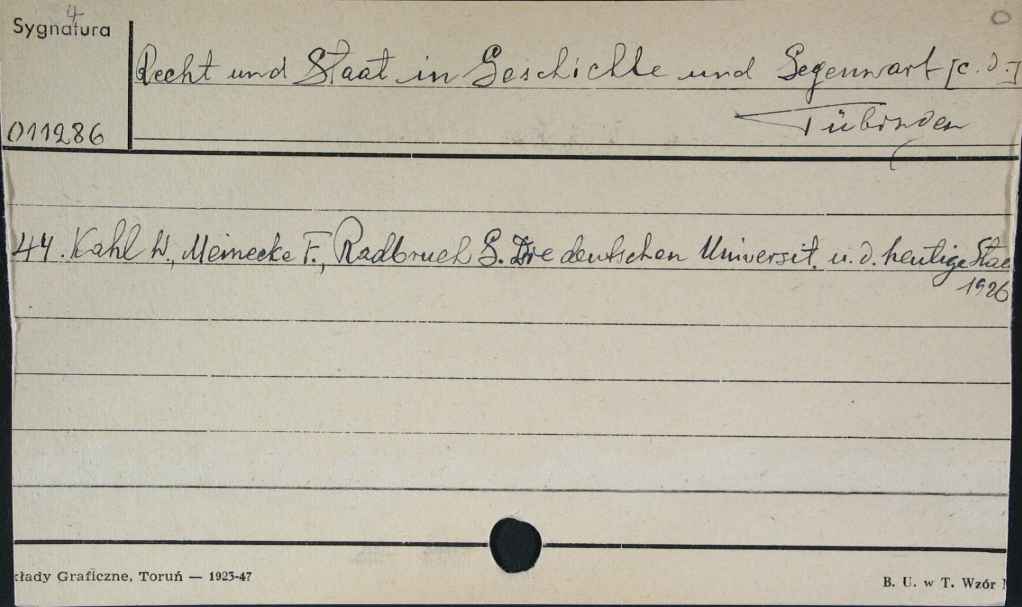 4
Sygnatura
Recht und Staat in Geschichte und Gegenwart [c. d.]
011286
Tübingen
44. Kahl W., Meinecke F., Radbruch G. Die deutschen Universit. u. d. heutige Staa
1926
kłady Graficzne, Toruń — 1923-47
B. U. w T. Wzór